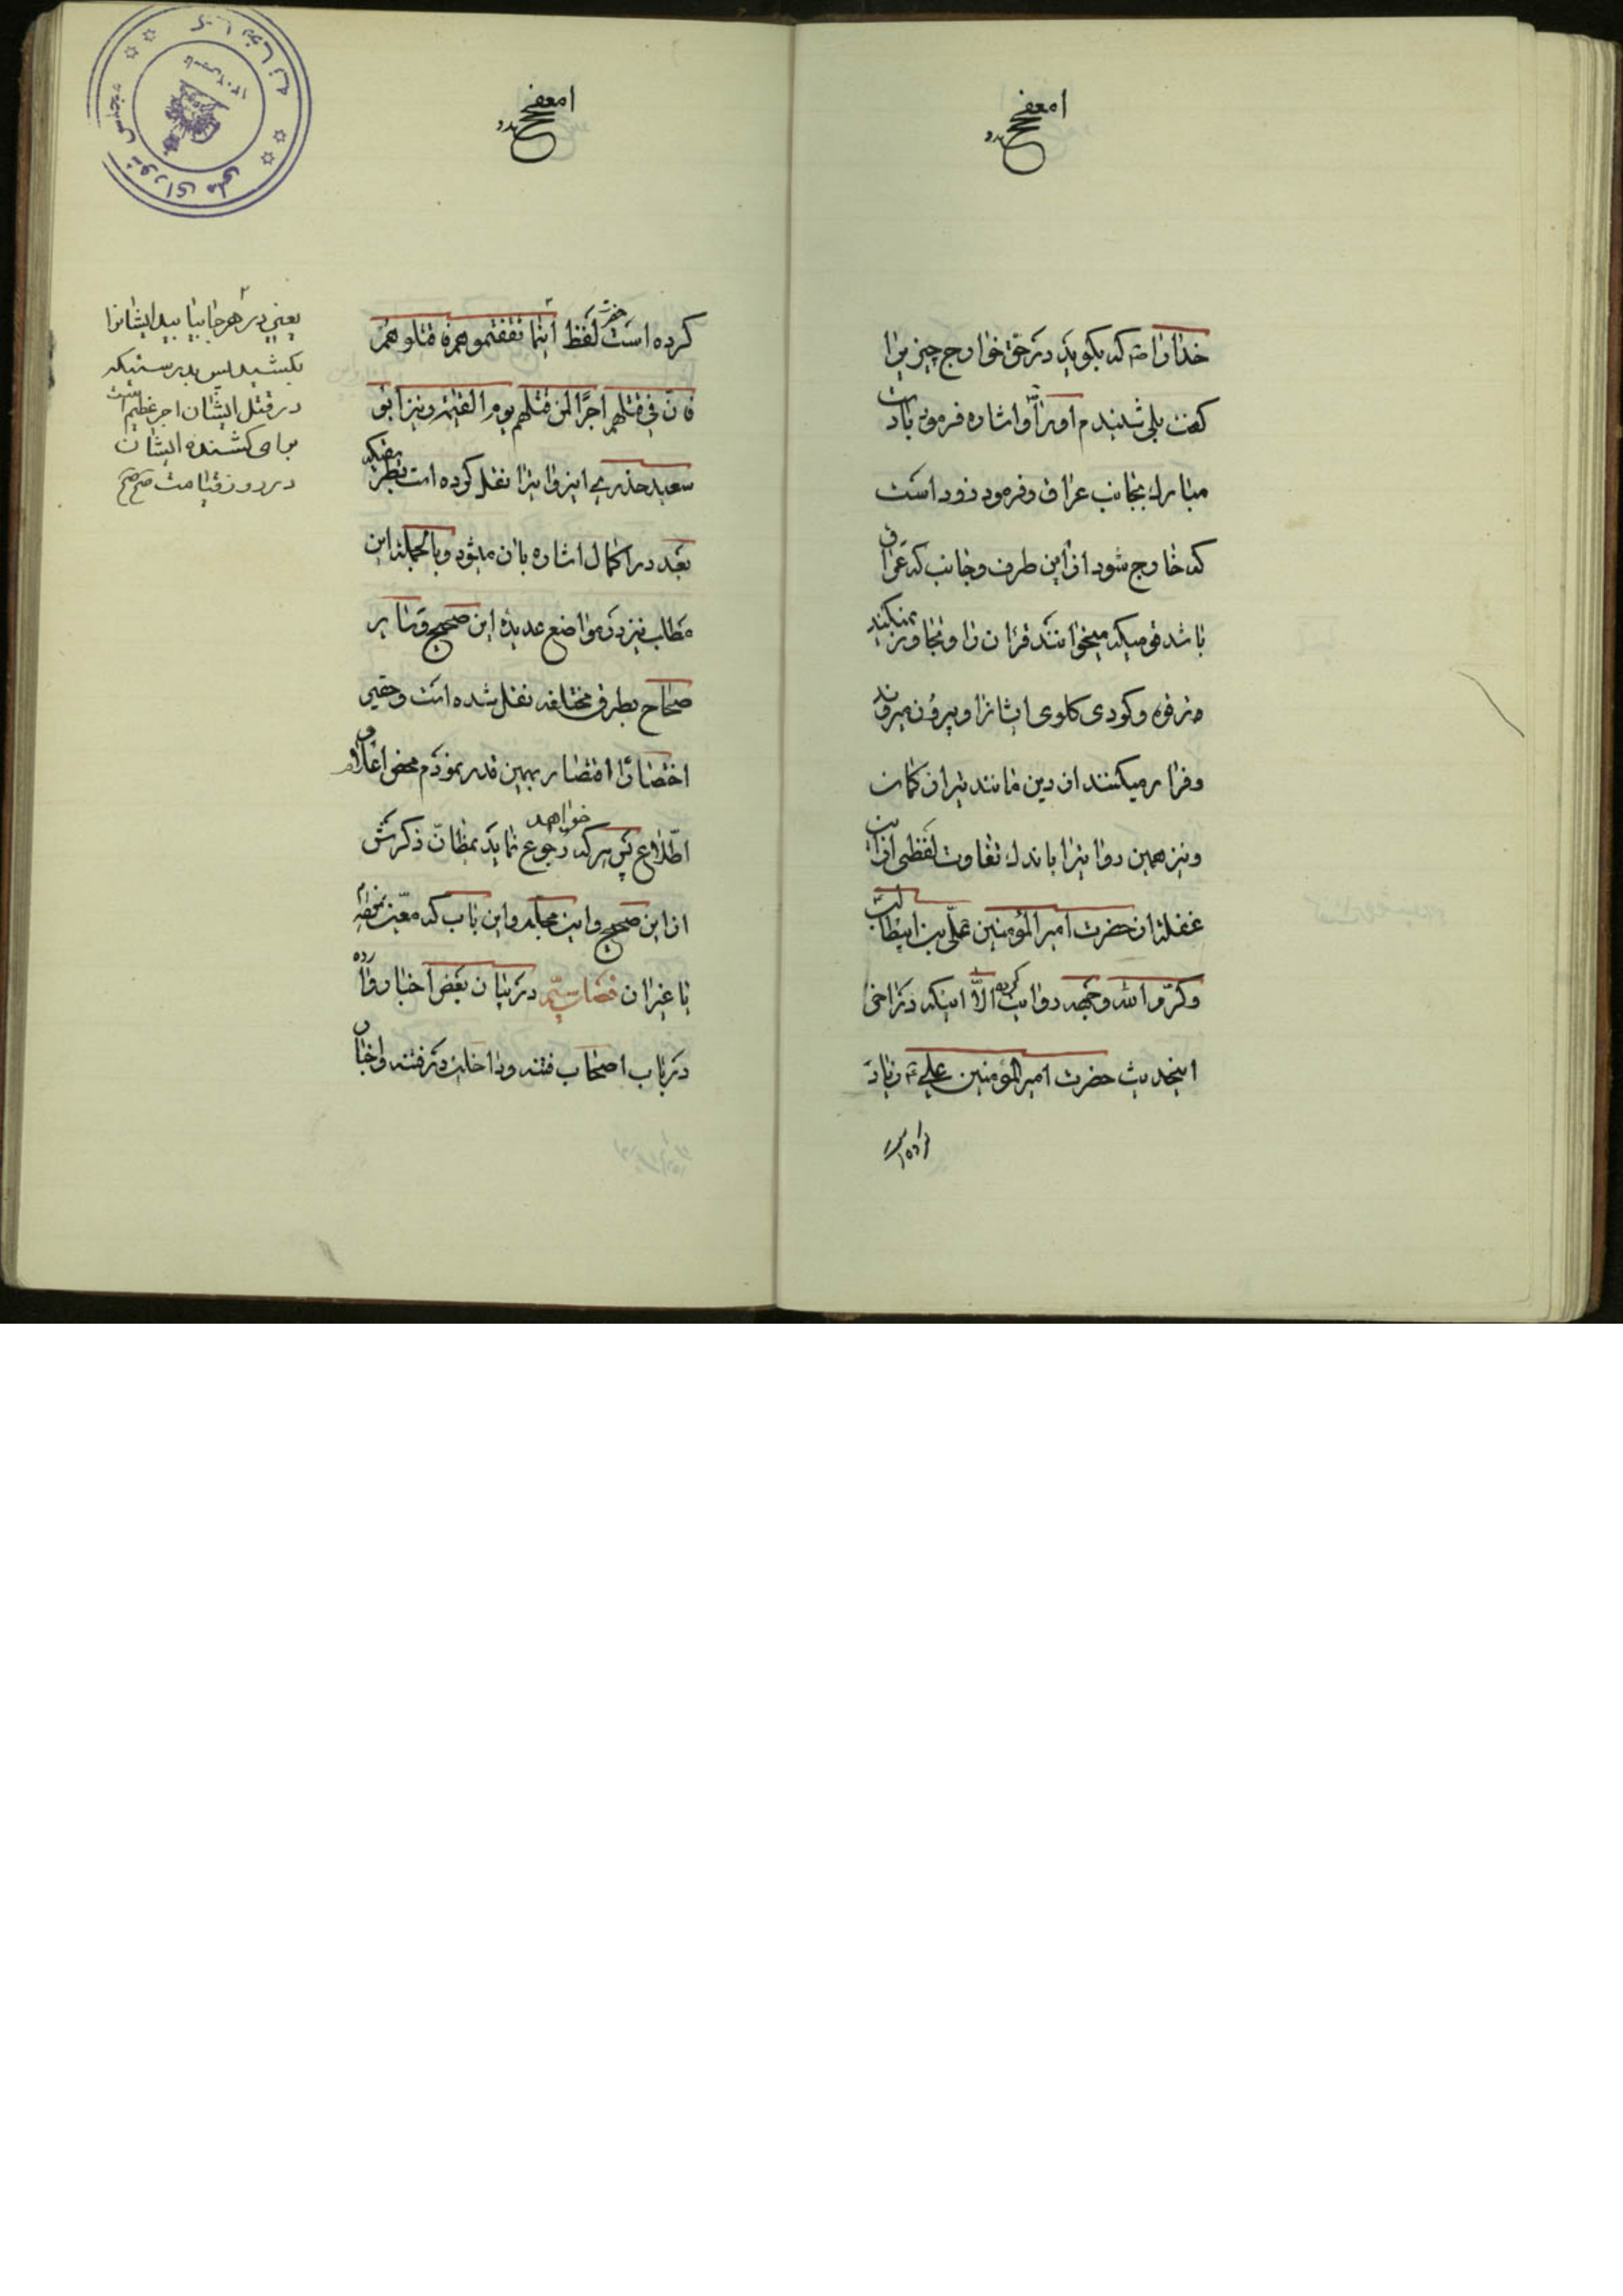 خدا را ص که بگوید در حق خوارج چیزیرا
گفت بلی شنیدم او را و اشاره فرمود بادست
مبارک بجانب عراق و فرمود زود است
که خارج شود از این طرف و جانب که عراق
باشد قومیکه میخوانند قرآن را و تجاوز نمیکند
و گودی گلوی ایشانرا و بیرون میروند
و فرار میکنند از دین مانند تیر از کمان
و نیز همین روایترا باندک تفاوت لفظی از این
غفلة از حضرت امیر المؤمنین علی بن ابیطالب
و کرّم الله وجهه روایت کرده الّا اینکه در آخر
اینحدیث حضرت امیر المؤمنین علی ع زیاد
کرده است حضرت لفظ اینما ثقفتموهم فاقتلوهم
فان في قتلهم اجرًا لمن قتلهم یوم القیمة و نیز ابو
سعید خدری این روایترا نقل کرده است بطریقیکه
بعد در اکمال اشاره بان میشود و بالجملة این
مطالب نیز در مواضع عدیده این صحیح و سایر
صحاح بطرق مختلفه نقل شده است و حقیر
اختصارًا اقتصار بهمین قدر نمودم محض اعلام و
اطّلاع پس هر که خواهد رجوع نماید بمظانّ ذکرش
از این صحیح و این مجلد و این باب که معیّن نموده‌ام
یا غیر آن فصل سیّم در بیان بعض اخبار وارده
در باب اصحاب فتنه و داخلین در فتنه و اخبار
یعنی در هر جا بیابید ایشانرا
بکشید پس بدرستیکه
در قتل ایشان اجر عظیم است
برای کشنده ایشان
در روز قیامت صح صح